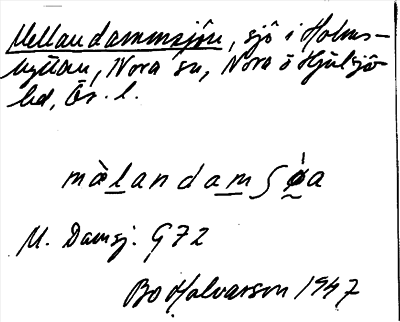 Mellandammsjön, sjö i Holms-
hyttan, Nora sn, Nora o Hjulsjö
bd, Ör. l.
mὰlandamʃǿa
M. Damsj. G72
Bo Halvarson 1947